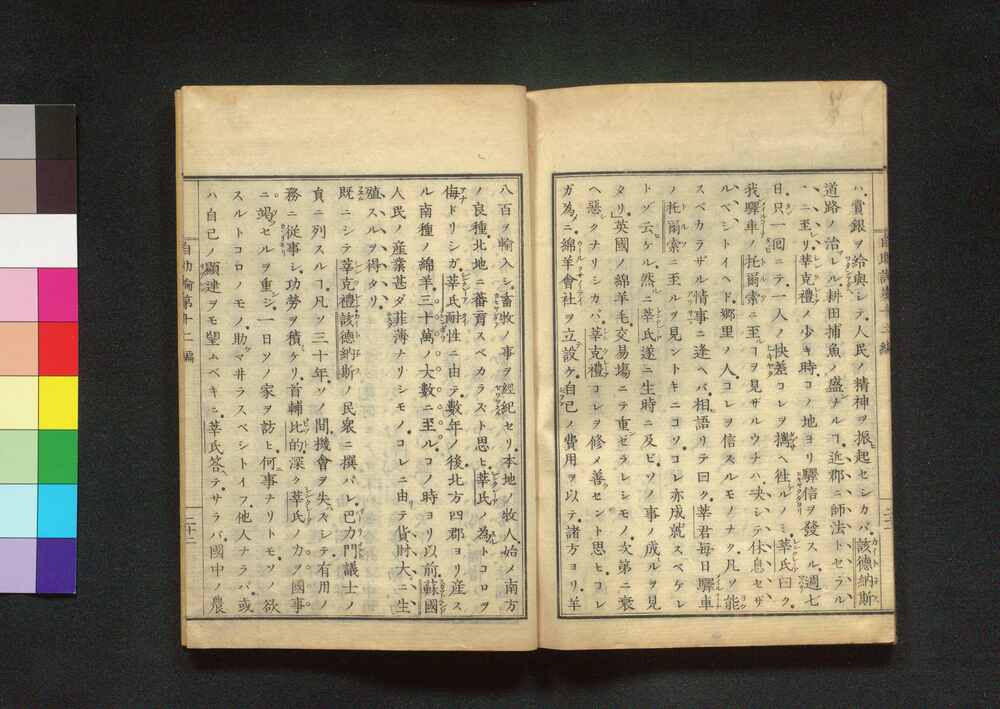 ハ、賞銀ヲ給與シテ、人民ノ精神ヲ振起セシカバ、該德納斯
道路ノ治レル、耕田捕魚ノ盛ナルヿ、近郡ニ師法トセラル
ヽニ至リ、莘克禮ノ少キ時、コノ地ヨリ驛信ヲ發スル、週七
日只一回ニテ、一人ノ快差コレヲ擕ヘ徃ルノミ、莘氏曰ク、
我驛車ノ托爾索ニ至ルヿヲ見ザルウチハ、决シテ休息セザ
ルベシトイヘド、郷里ノ人コレヲ信スルモノナク、凡ソ能
スベカラザル情事ニ逢ヘバ、相語リテ曰ク、莘君毎日驛車
ノ托爾索ニ至ルヲ見ントキニコソ、コレ亦成就スベケレ
トゾ云ケル、然ニ莘氏遂ニ生時ニ及ビ、ソノ事ノ成ルヲ見
タリ」英國ノ綿羊毛、交易塲ニテ重ゼラレシモノ、次第ニ衰
ヘ惡クナリシカバ、莘克禮コレヲ修メ善セント思ヒ、コレ
ガ為ニ綿羊會社ヲ立設ケ、自己ノ費用ヲ以テ、諸方ヨリ、羊
八百ヲ輸入シ、畜牧ノ事ヲ經紀セリ、本地ノ牧人、始メ南方
ノ良種、北地ニ蕃育スベカラズト思ヒ、莘氏ノ為トコロヲ
侮ドリシガ、莘氏耐性ニ由テ、數年ノ後、北方四郡ヨリ産ス
ル南種ノ綿羊三十萬ノ大數ニ至ル、コノ時ヨリ以前、蘇國
人民ノ産業甚ダ菲薄ナリシモノ、コレニ由テ貨財大ニ生
殖スルヲ得タリ、
既ニシテ莘克禮、該德納斯ノ民衆ニ撰バレ、巴力門議士ノ
貟ニ列スルヿ、凡ソ三十年、ソノ間機會ヲ失ズシテ、有用ノ
務ニ従事シ、功勞ヲ積ケリ、首輔比的、深ク莘氏ノ力ヲ國事
ニ竭セルヲ重シ、一日ソノ家ヲ訪ヒ、何事ナリトモ、ソノ欲
スルトコロノモノ、助マ井ラスベシトイフ、他人ナラバ、或
ハ自己ノ顯達ヲモ望ムベキニ、莘氏答テ、サラバ國中ノ農
自助論第十二編
三十二